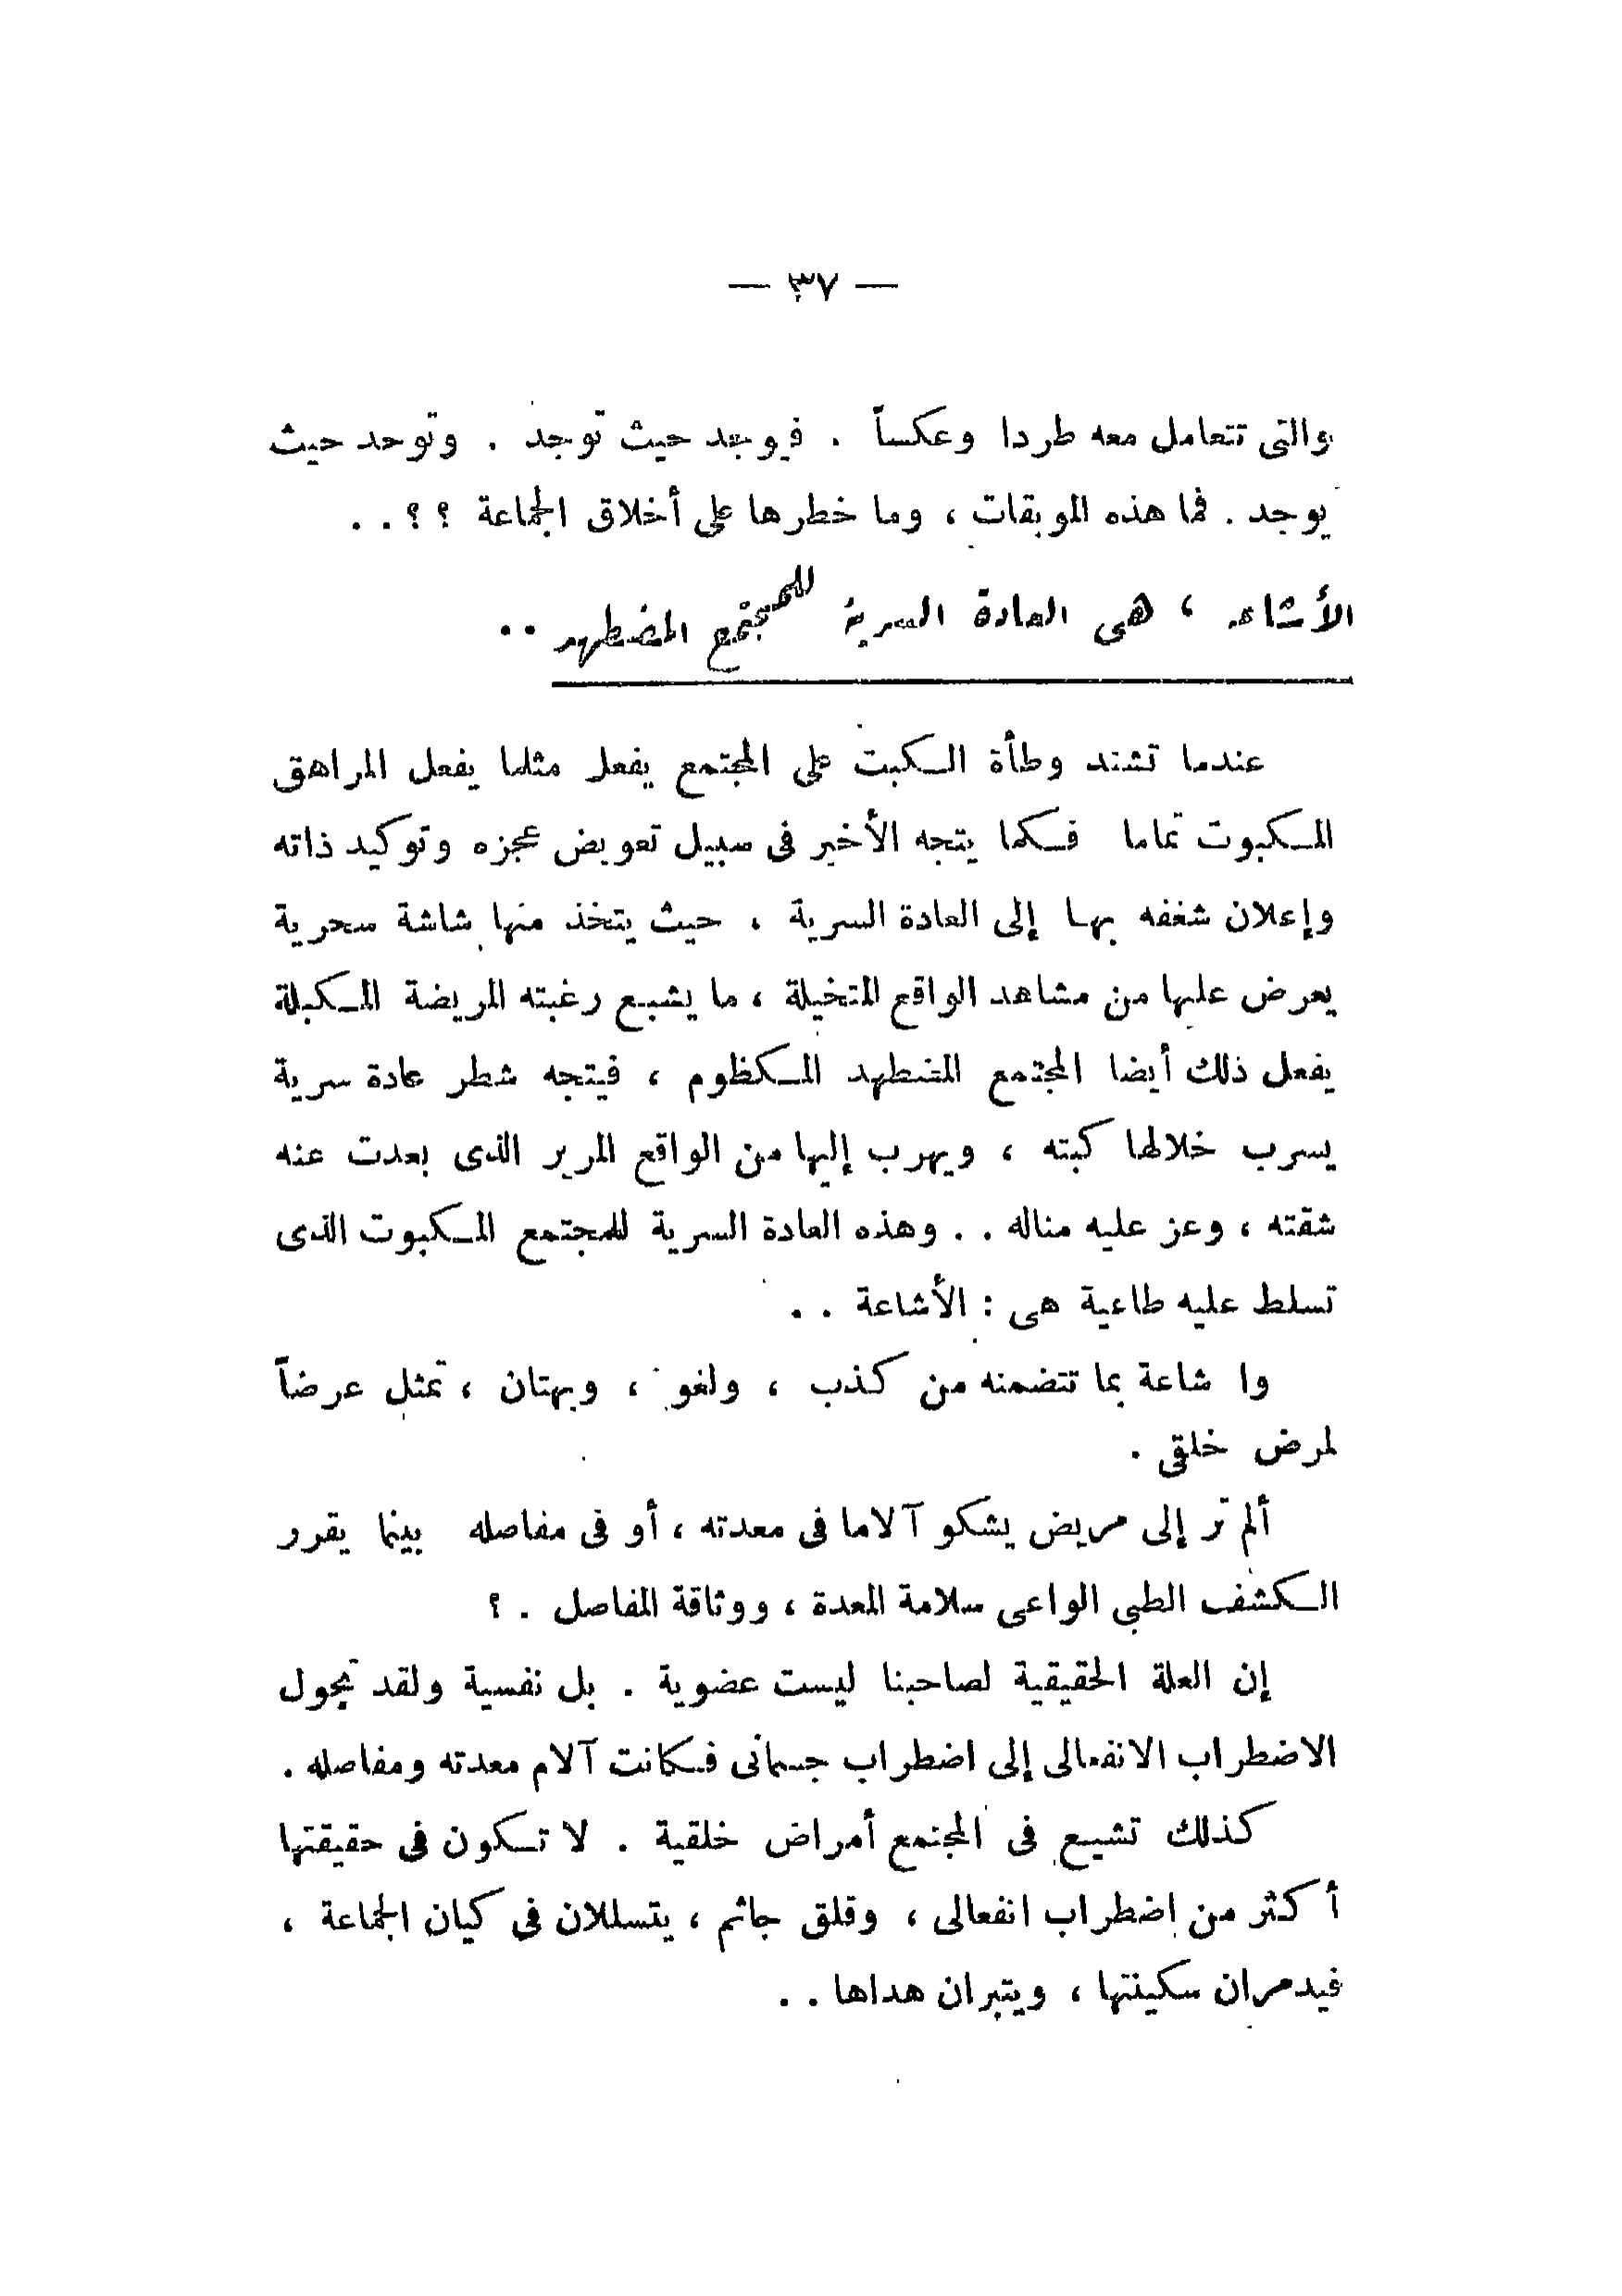 — ٣٧ —
والتى تتعامل معه طردا وعكساً . فيوجد حيث توجد . وتوحد حيث
يوجد . فما هذه الموبقات ، وما خطرها على أخلاق الجماعة ؟ ؟ . .
الأشاعة ، هى العادة السرية للمجتمع المضطهد ..
عندما تشتد وطأة الكبت على المجتمع يفعل مثلما يفعل المراهق
المكبوت تماما فكما يتجه الأخير فى سبيل تعويض عجزه وتوكيد ذاته
وإعلان شغفه بها إلى العادة السرية ، حيث يتخذ منها شاشة سحرية
يعرض عليها من مشاهد الواقع المتخيلة ، ما يشبع رغبته المريضة المكبلة
يفعل ذلك أيضا المجتمع المضطهد المكظوم ، فيتجه شطر عادة سرية
يسرب خلالها كبته ، ويهرب إليها من الواقع المرير الذى بعدت عنه
شقته ، وعز عليه مناله . . وهذه العادة السرية للمجتمع المكبوت الذى
تسلط عليه طاعية هى : الأشاعة . .
وا شاعة بما تتضمنه من كذب ، ولغو ، وبهتان ، تمثل عرضاً
لمرض خلقى .
ألم تر إلى مريض يشكو آلاما فى معدته ، أو فى مفاصله بينما يقرر
الكشف الطبى الواعى سلامة المعدة ، ووثاقة المفاصل . ؟
إن العلة الحقيقية لصاحبنا ليست عضوية . بل نفسية ولقد تحول
الاضطراب الانفعالى إلى اضطراب جسمانى فكانت آلام معدته ومفاصله .
كذلك تشيع فى المجتمع أمراض خلقية . لا تكون فى حقيقتها
أكثر من إضطراب انفعالى ، وقلق جاثم ، يتسللان فى كيان الجماعة ،
فيدمران سكينتها ، ويتبران هداها . .